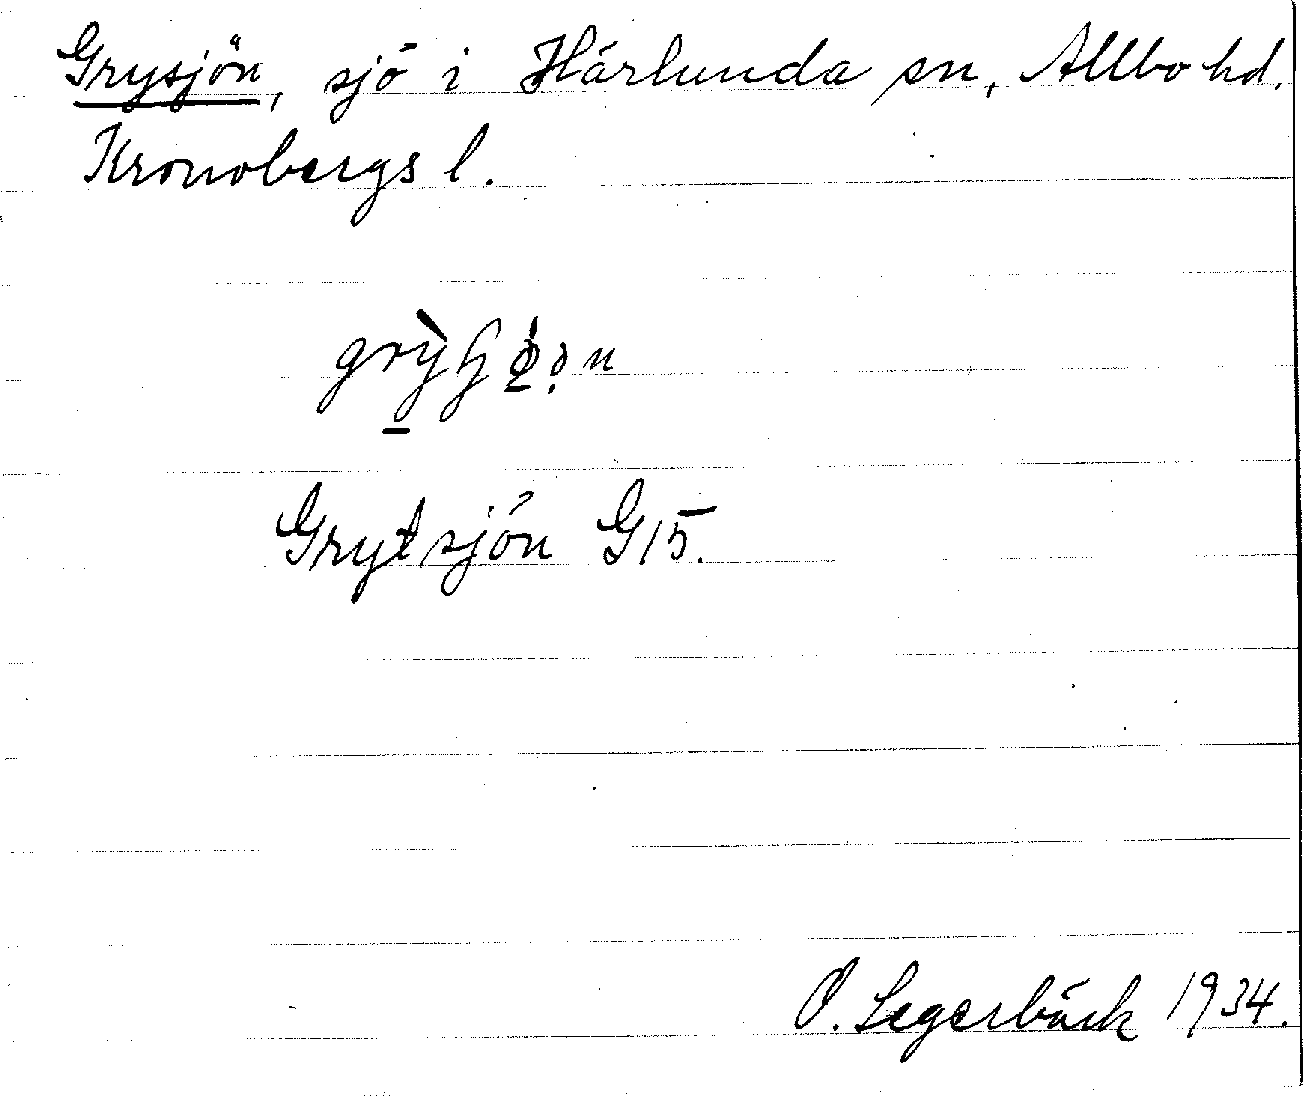 Grysjön, sjö i Härlunda sn, Allbo hd.
Kronobergs l.
Grytsjön G15.
O. Segerbäck 1934.